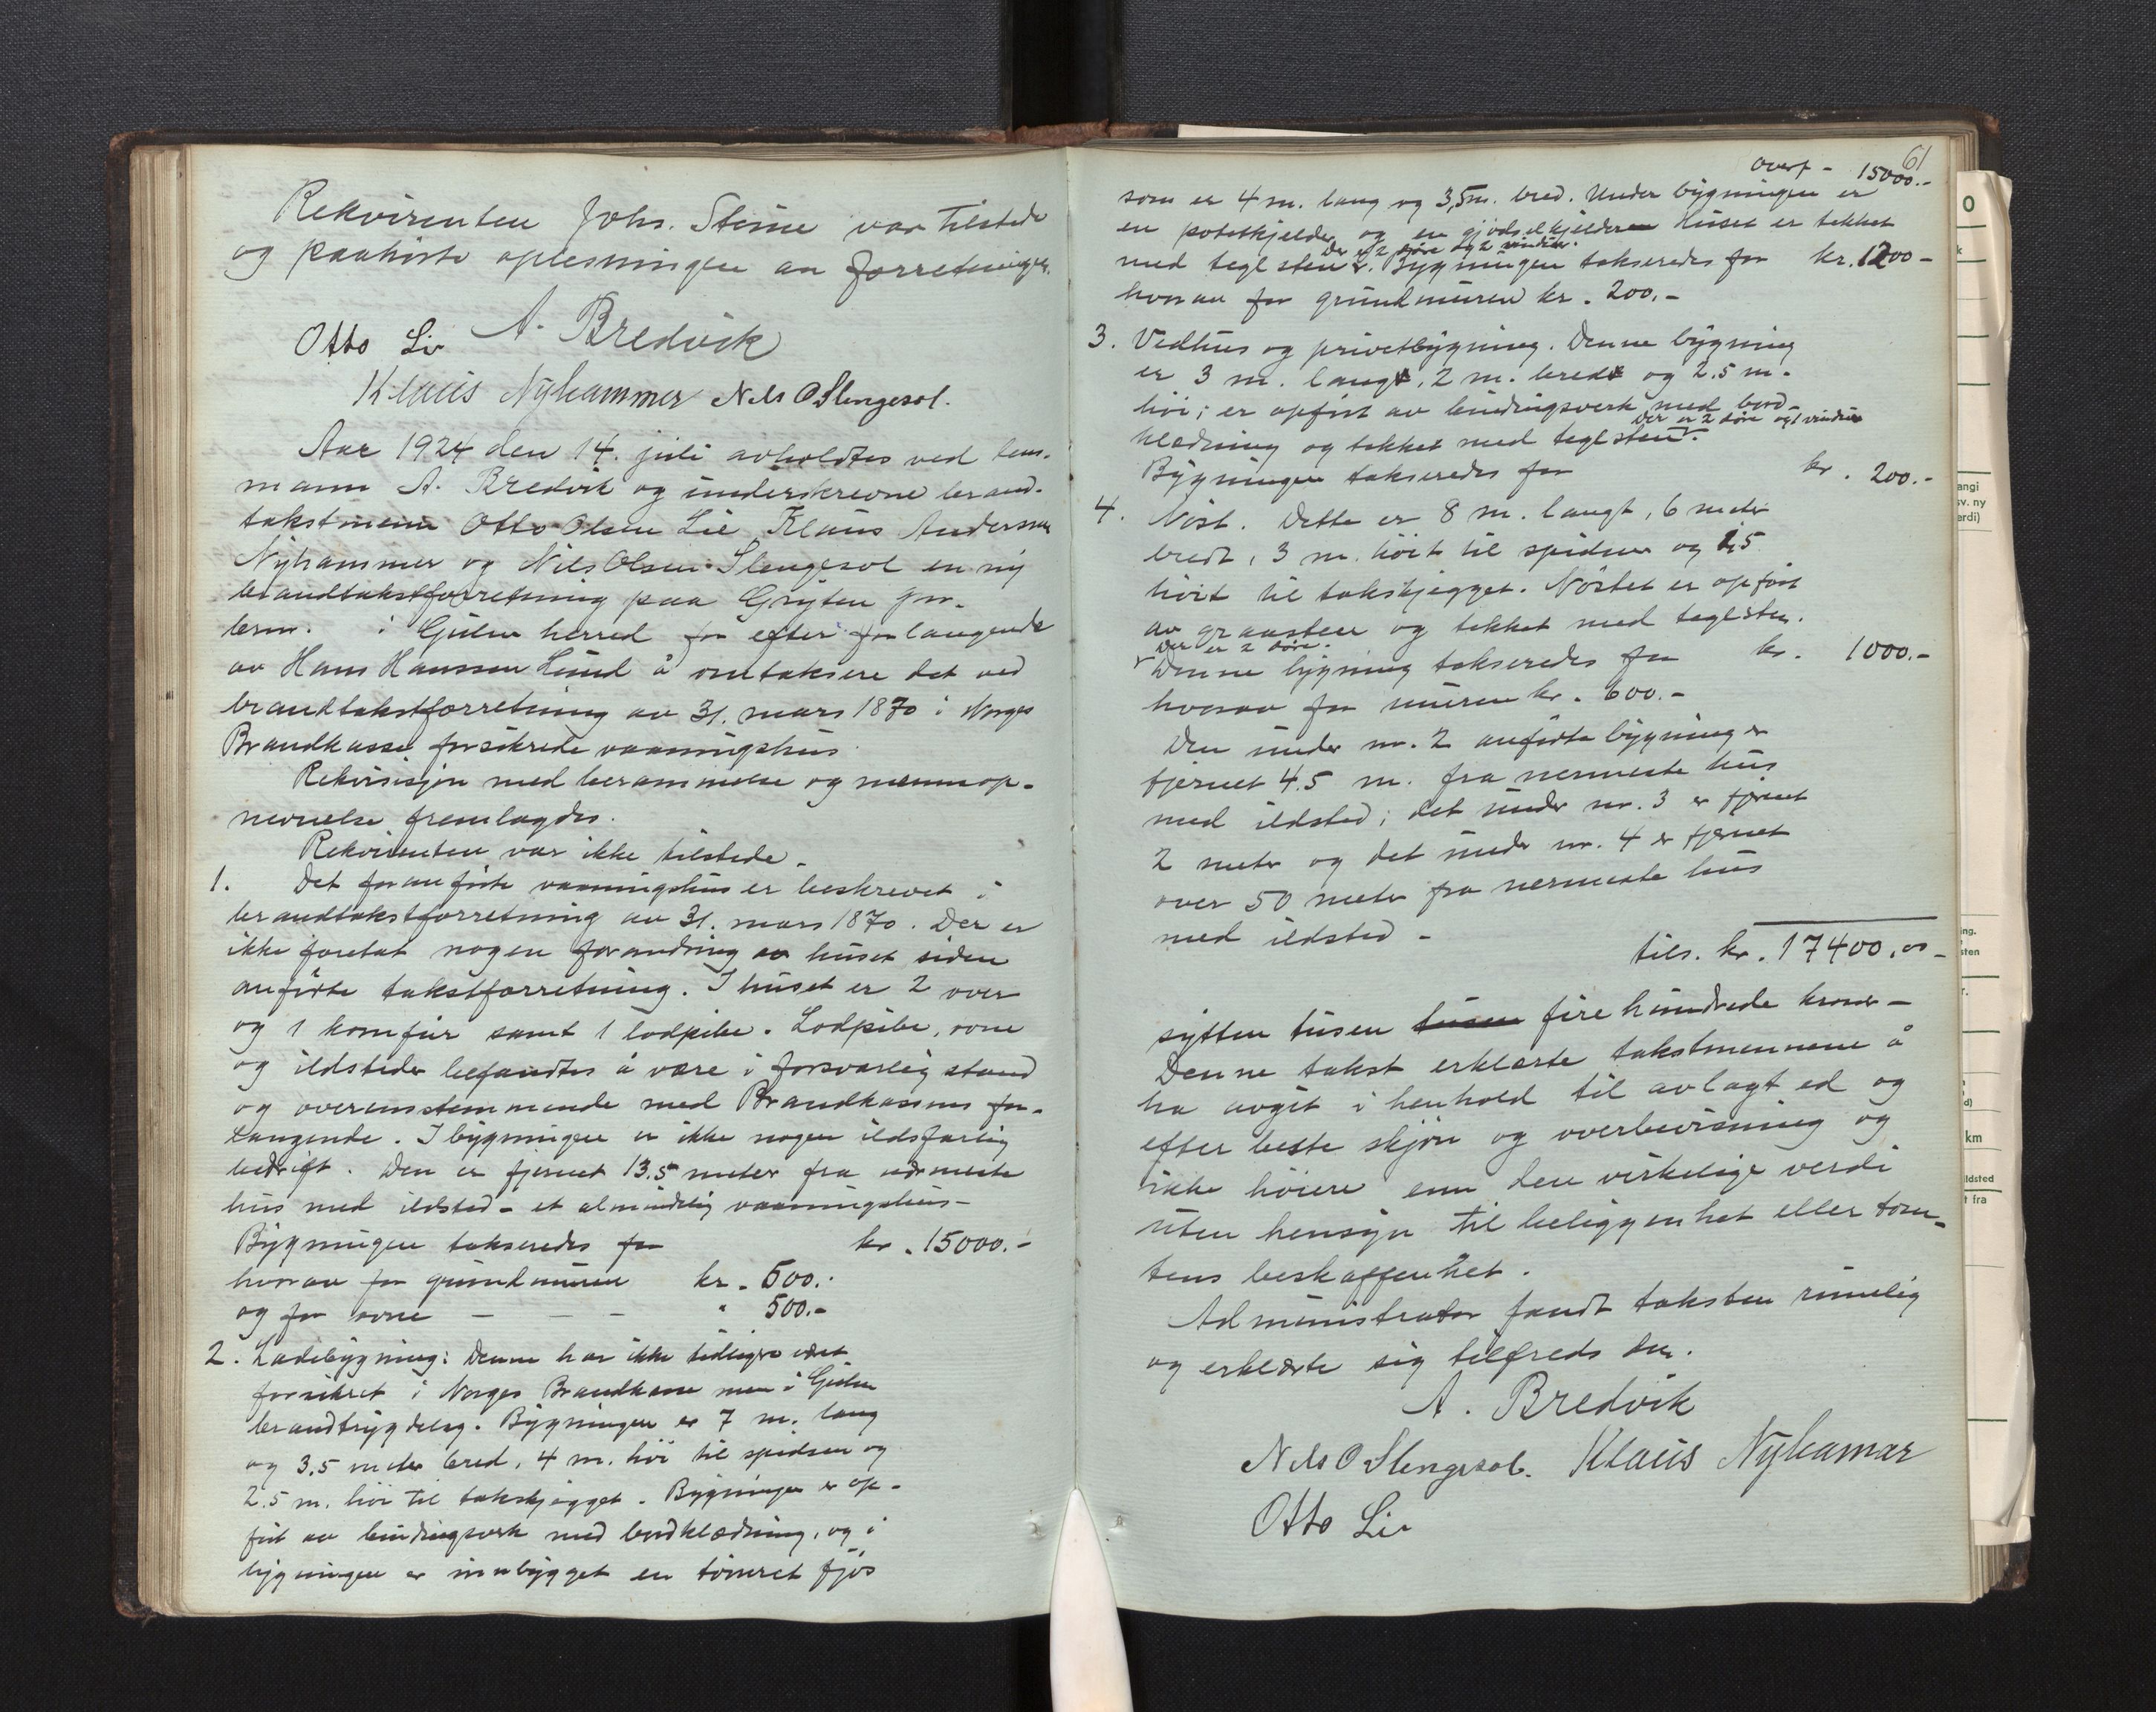 Rekvirenten Johs. Steine var tilstede
og paahørte oplesningen av forretningen.
A. Bredvik
Otto Li
Klaus Nyhammer Nils O Slengesol.
Aar 1924 den 14. juli avholdtes ved lens-
mann A. Bredvik og underskrevne brand-
takstmenn Otto Olsen Lie, Klaus Andersen
Nyhammer og Nils Olsen Slengesol en ny
brandtakstforretning paa Gryten gnr.
brnr. i Gulen herred for efter forlangende
av Hans Hanssen Lund å omtaksere det ved
brandtakstforretning av 31. mars 1870 i Norges
Brandkasse forsikrede vaaningshus.
Rekvisisjon med berammelse og mennop-
nevnelse fremlagdes.
Rekvirenten var ikke tilstede.
1. Det foranførte vaaningshus er beskrevet i
brandtakstforretning av 31. mars 1870. Der er
ikke foretat nogen forandring av huset siden
anførte takstforretning. I huset er 2 over
og 1 komfur samt 1 lodpibe. Lodpibe, ovne
og ildsteder befandtes å være i forsvarlig stand
og overensstemmende med Brandkassens for-
langende. I bygningen er ikke nogen ildsfarlig
bedrift. Den er fjernet 13.5 meter fra nærmeste
hus med ildsted - et almindelig vaaningshus -
Bygningen takseredes for kr. 15000.-
hvorav for grundmuren kr. 500.-
og for ovne - - - " 500.-
2. Ladebygning: Denne har ikke tidligere været
forsikret i Norges Brandkasse men i Gulen
brandtrygdelag. Bygningen er 7 m. lang
og 3.5 meter bred, 4 m. høi til spidsen og
2.5 m. høi til takskjegget. Bygningen er op-
ført av bindingsverk med bordklædning, og i
bygningen er innbygget en tømret fjøs
61
overf - 15000.-
som er 4 m. lang og 3,5 m. bred. Under bygningen er
en potetkjelder og en gjødselkjelder Huset er tekket
Der er 2 døre og 2 vinduer.
med teglsten. Bygningen takseredes for kr. 1200-
hvorav for grundmuren kr. 200.-
3. Vedhus og privetbygning. Denne bygning
er 3 m. lang, 2 m. bred og 2.5 m.
høi; er opført av bindingsverk med bord-
Der er 2 døre og 1 vindue
klædning og tekket med teglsten.
Bygningen takseredes for kr. 200.-
4. Nøst. Dette er 8 m. langt, 6 meter
bredt, 3 m. høit til spidsen og 1,5
høit til takskjegget. Nøstet er opført
av graasten og tekket med teglsten.
Der er 2 døre.
Denne bygning takseredes for kr. 1000.-
hvorav for muren kr. 600.-
Den under nr. 2 anførte bygning er
fjernet 4.5 m. fra nermeste hus
med ildsted; det under nr. 3 er fjernet
2 meter og det under nr. 4 er fjernet
over 50 meter fra nermeste hus
med ildsted -
tils. kr. 17400.00-
sytten tusen tusen fire hundrede kroner -
Denne takst erklærte takstmennene å
ha avgit i henhold til avlagt ed og
efter beste skjøn og overbevisning og
ikke høiere enn den virkelige verdi
uten hensyn til beliggenhet eller tom-
tens beskaffenhet.
Administrator fandt taksten rimelig
og erklærte sig tilfreds
A. Bredvik
Nils O Slengesol. Klaus Nyhamar
Otto Li
O
angi
sv. ny
erdi)
ng.
sten
r.
d)
km
ildsted
t fra